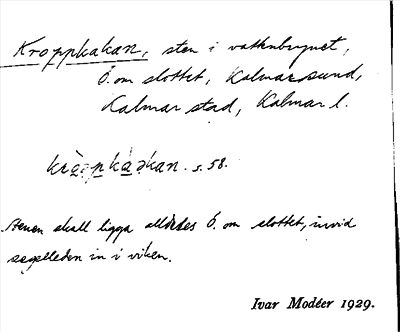 Kroppkakan, sten i vattenbrynet,
Ö. om slottet, Kalmarsund,
Kalmar stad, Kalmar l.
s. 58.
Stenen skall ligga alldeles Ö. om slottet, invid
segelleden in i viken.
Ivar Modéer 1929.